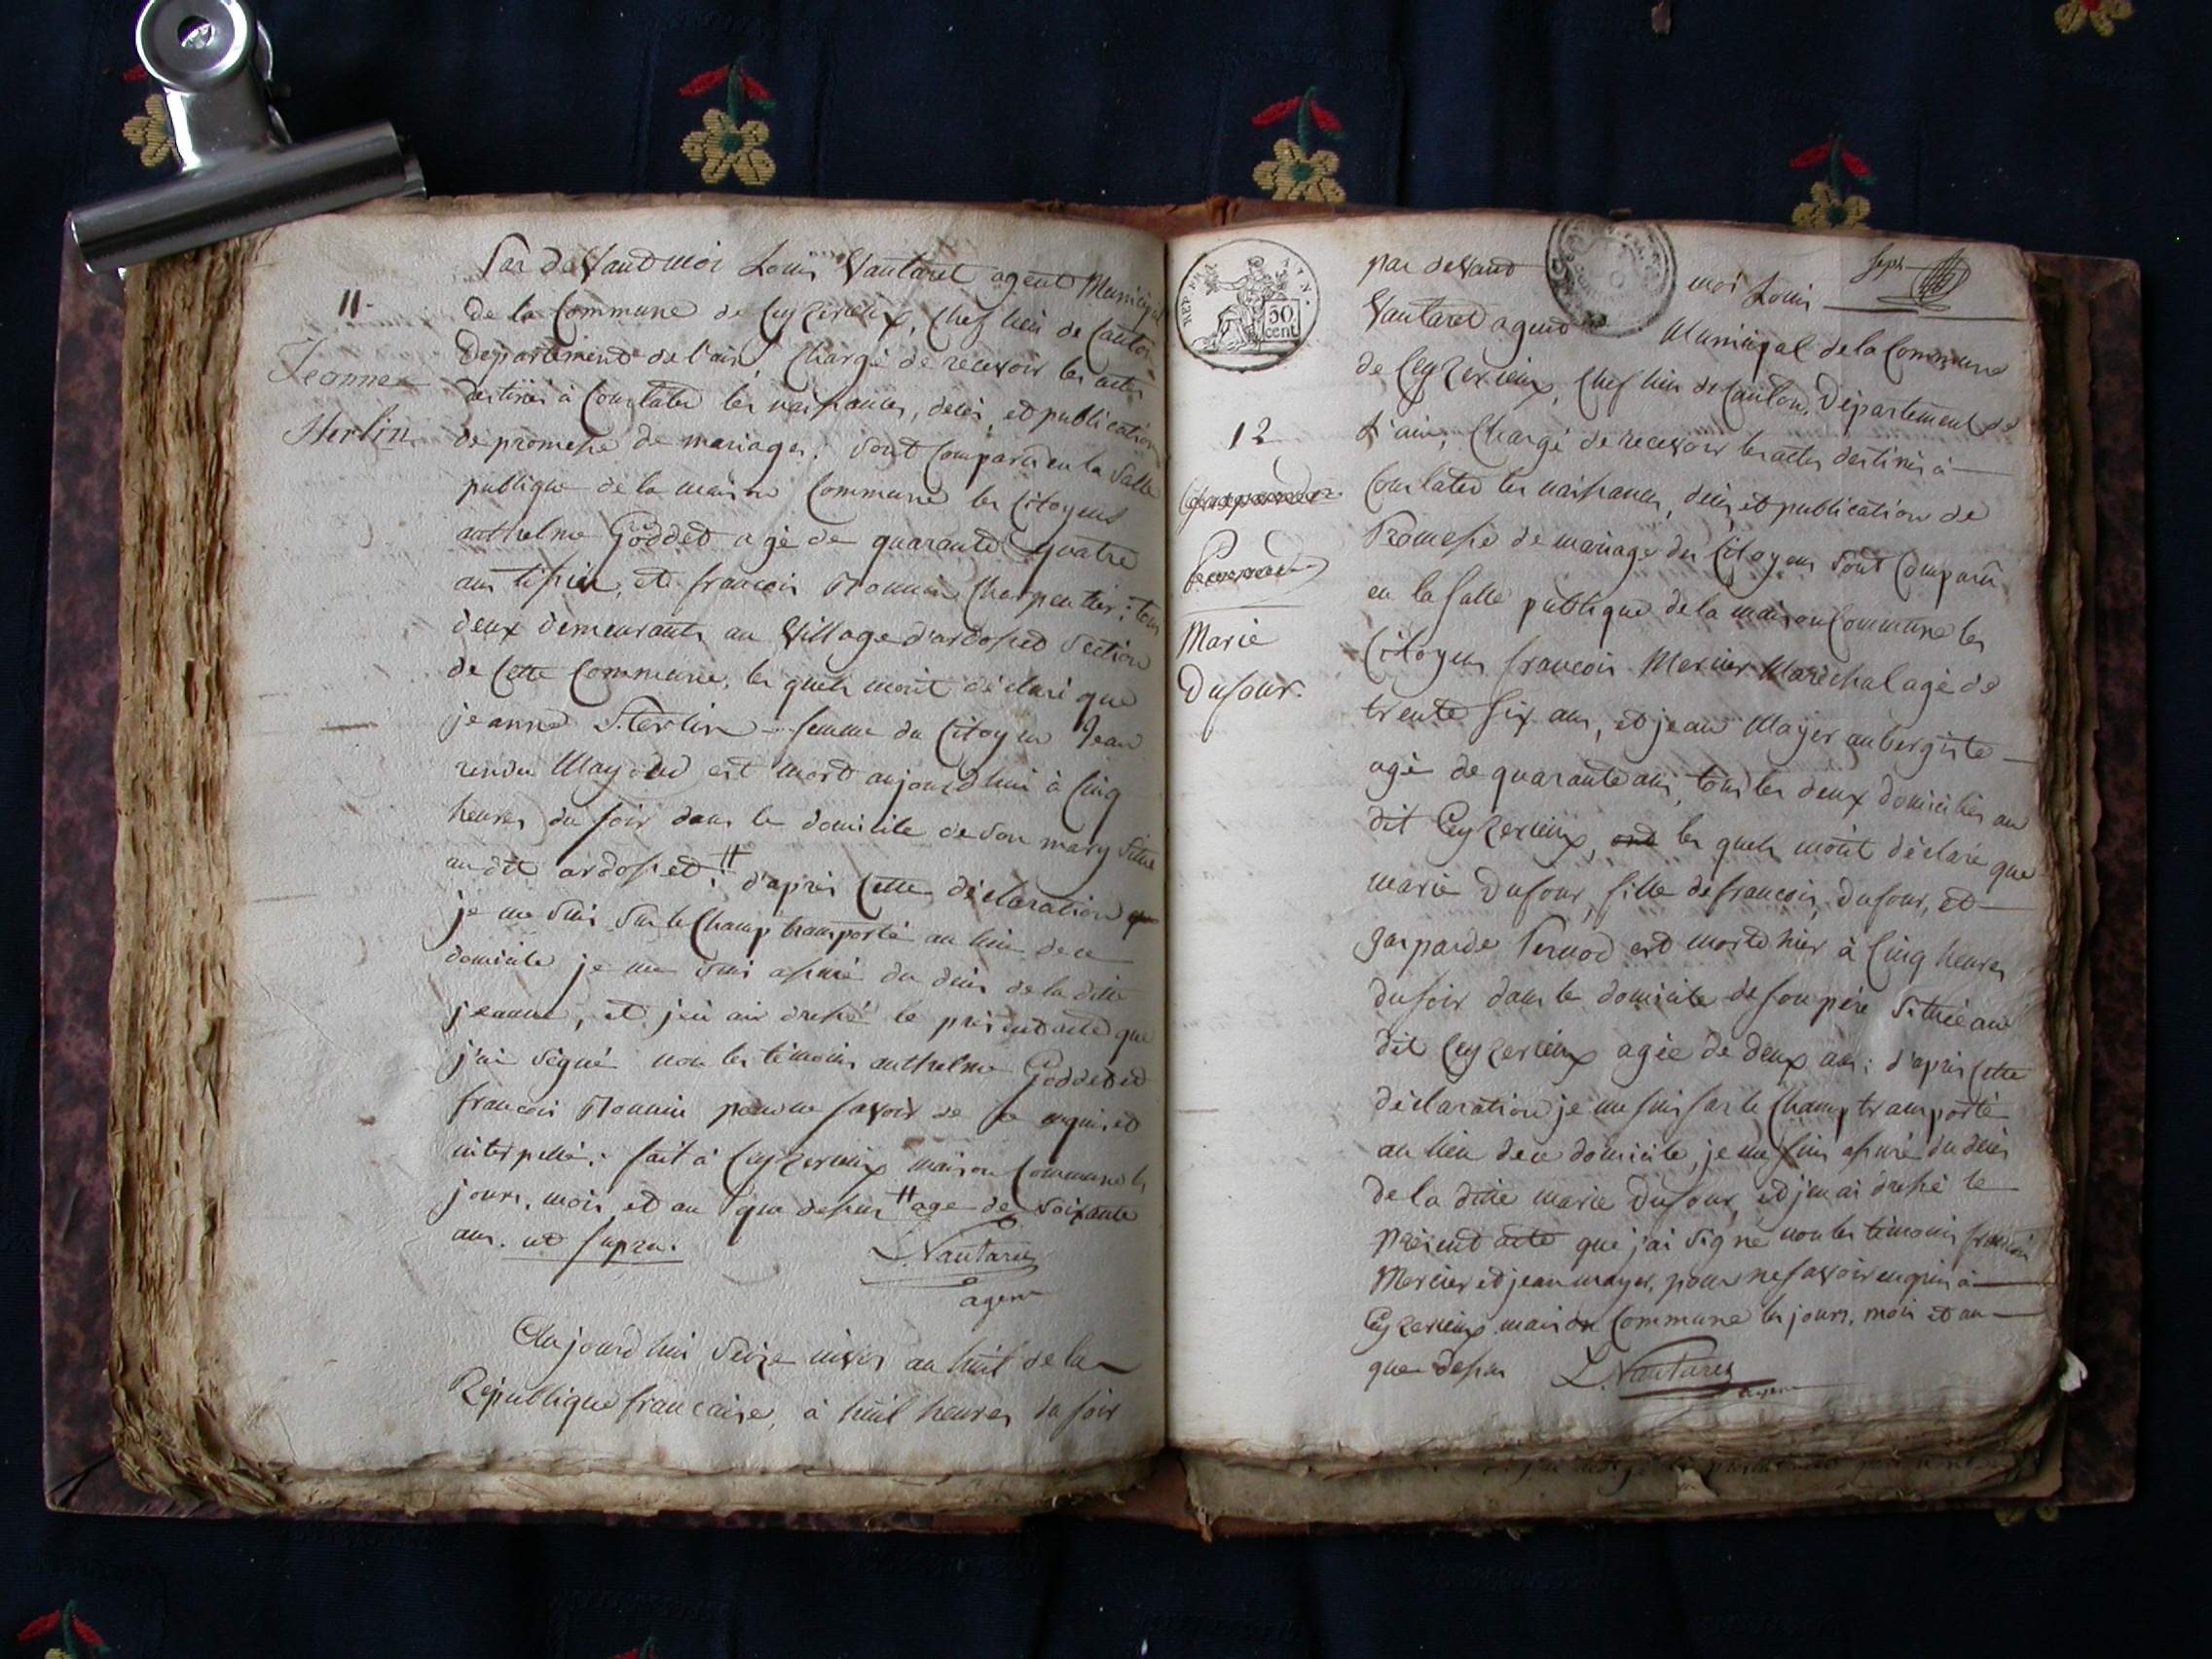 11
Jeanne
Herlin
Par devand moi Louis Vautaret agent Municipal
de la Commune de Ceyzerieux, Chef lieu de Canton
Département de l'ain, Chargé de recevoir les actes
destinés à Constater les naissances, décès, et publication
de promesse de mariages. Sont comparu en la Salle
publique de la maison Commune les Citoyens
anthelme Goddet agé de quarante quatre
ans tissier, et francois Monnin Charpentier: tous
deux demeurants au Village d'ardosset Section
de Cette Commune, les quels mont déclaré que
jeanne Herlin femme du Citoyen Jean
Mayoud est mort aujourdhui à Cinq
heures du soir dans le domicile de son mary Sittué
au dit ardosset; # d'après Cette déclaration
je me suis Sur le Champ transporté au lieu de ce
domicile je me suis assuré du décès de la ditte
jeanne, et j'en ai dressé le présent acte que
j'ai Signé non les témoins anthelme Goddet et
francois Monnin pour ne savoir de ce enquis et
interpellé: fait à Ceyzerieux maison Commune les
jours, mois et an que dessus # age de soixante
ans. ut supra.
L. Vautaret
agent
Aujourdhui Seize nivos an huit de la
République francaise, à huit heures du soir
REP. FRA.
50
cent
12
Marie
Dufour.
Sept
par devand moi Louis
Vautaret agent Municipal de la Commune
de Ceyzerieux, Chef lieu de Canton, Département de
L'ain, Chargé de recevoir les actes destinés à
Constater les naissances, décès, et publication de
Promesse de mariage des Citoyens Sont Comparu
en la Salle publique de la maison Commune les
Citoyens francois Mercier Maréchal agé de
trente six ans, et jean Mayer aubergiste
agé de quarante ans, tous les deux domiciliés au
dit Ceyzerieux, ont les quels mont déclaré que
marie Dufour, fille de francois Dufour, et
gasparde Pernod est morte hier à Cinq heures
du soir dans le domicile de son père Sittué au
dit Ceyzerieux agée de deux ans: d'après Cette
déclaration je me suis sur le Champ transporté
au lieu de ce domicile, je me suis assuré du décès
de la ditte marie Dufour, et j'en ai dressé le
présent acte que j'ai Signé non les témoins francois
Mercier et jean mayer, pour ne savoir enquis à
Ceyzerieux maison Commune les jours, mois et an
que dessus L. Vautaret
agent